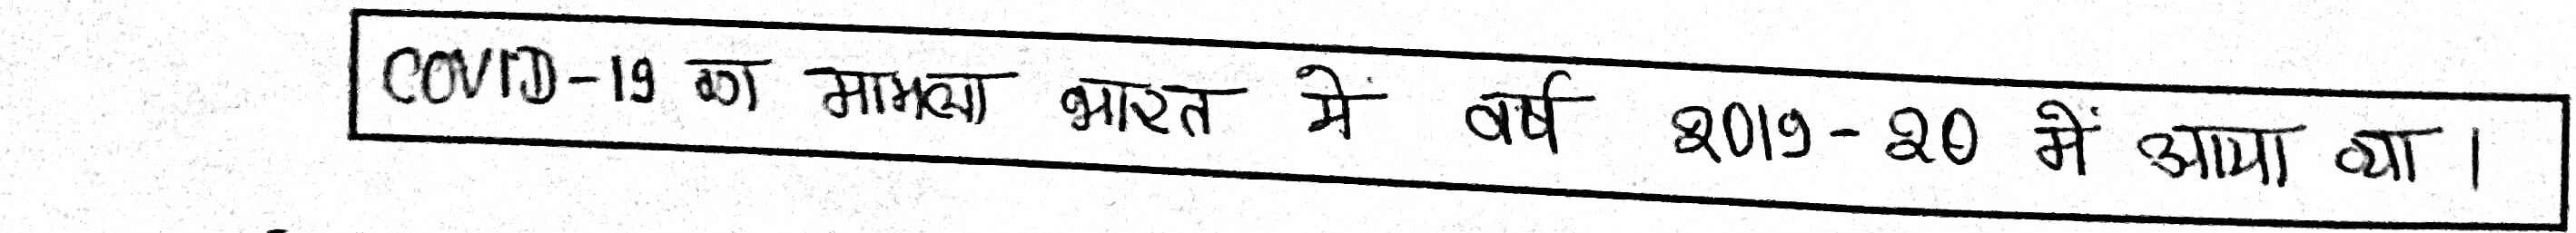 COVID-19 का मामला भारत में वर्ष 2019-20 में आया था।